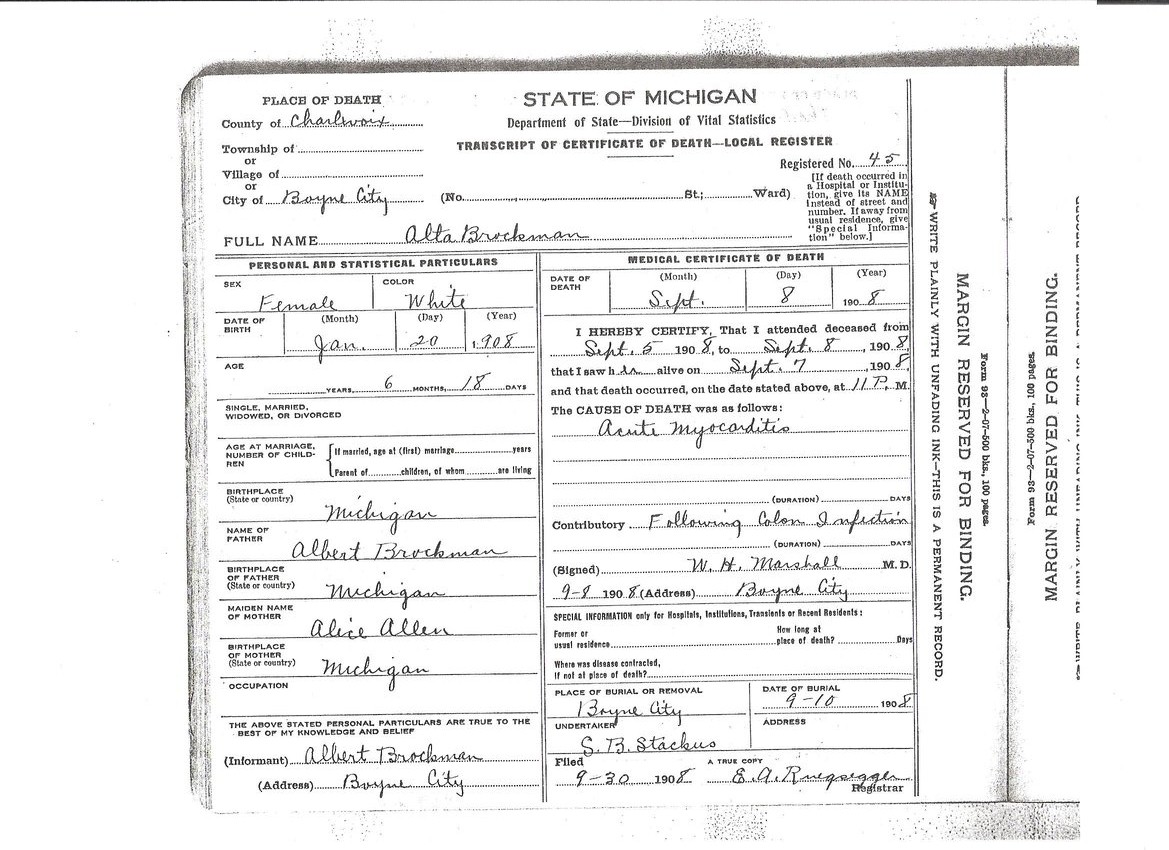 PLACE OF DEATH
County of Charlevoix
Township of
or
Village of
or
City of Boyne City
STATE OF MICHIGAN
Department of State—Division of Vital Statistics
TRANSCRIPT OF CERTIFICATE OF DEATH—LOCAL REGISTER
Registered No. 45
(No. St.; Ward)
[If death occurred in
a Hospital or Institu-
tion, give its NAME
instead of street and
number. If away from
usual residence, give
"Special Informa-
tion" below.]
FULL NAME Alta Brockman
PERSONAL AND STATISTICAL PARTICULARS
SEX
Female
COLOR
White
DATE OF
BIRTH
(Month) (Day) (Year)
Jan. 20 1908
AGE
YEARS, 6 MONTHS, 18 DAYS
SINGLE, MARRIED,
WIDOWED, OR DIVORCED
AGE AT MARRIAGE,
NUMBER OF CHILD-
REN
If married, age at (first) marriage years
Parent of children, of whom are living
BIRTHPLACE
(State or country)
Michigan
NAME OF
FATHER
Albert Brockman
BIRTHPLACE
OF FATHER
(State or country)
Michigan
MAIDEN NAME
OF MOTHER
Alice Allen
BIRTHPLACE
OF MOTHER
(State or country)
Michigan
OCCUPATION
THE ABOVE STATED PERSONAL PARTICULARS ARE TRUE TO THE
BEST OF MY KNOWLEDGE AND BELIEF
(Informant) Albert Brockman
(Address) Boyne City
MEDICAL CERTIFICATE OF DEATH
DATE OF
DEATH
(Month) (Day) (Year)
Sept. 8 1908
I HEREBY CERTIFY, That I attended deceased from
Sept. 5 1908, to Sept. 8, 1908,
that I saw h is alive on Sept. 7, 1908,
and that death occurred, on the date stated above, at 11 P. M.
The CAUSE OF DEATH was as follows:
Acute Myocarditis
(DURATION) DAYS
Contributory Following Colon Infection
(DURATION) DAYS
(Signed) W. H. Marshall M. D.
9-8 1908 (Address) Boyne City
SPECIAL INFORMATION only for Hospitals, Institutions, Transients or Recent Residents:
Former or
usual residence
How long at
place of death? Days
Where was disease contracted,
If not at place of death?
PLACE OF BURIAL OR REMOVAL
Boyne City
DATE OF BURIAL
9-10 1908
UNDERTAKER
S. B. Stackus
ADDRESS
Filed
9-30 1908
A TRUE COPY
E. A. Ruegsegger
Registrar
WRITE PLAINLY WITH UNFADING INK—THIS IS A PERMANENT RECORD.
MARGIN RESERVED FOR BINDING.
Form 93—2-07-500 bks., 100 pages.
Form 93—2-07-500 bks., 100 pages.
MARGIN RESERVED FOR BINDING.